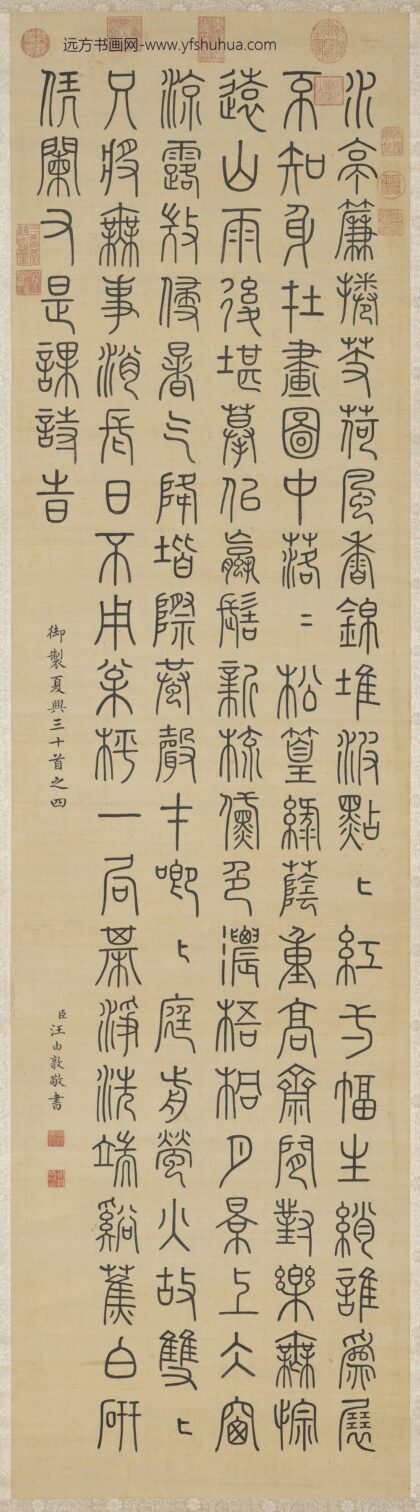 远方书画网-www.yfshuhua.com
水亭簾捲芰荷風香錦堆波點點紅方幅生綃誰爲展
不知身在畫圖中落落松篁綠蔭重高齋閒對樂無悰
遠山雨後堪摹仿蠃髻新梳黛色濃梧桐月景上窗
涼露暑气降堦際蛩聲才唧唧庭前螢火故雙雙
只將無事消長日不用枰一局棊淨洗端谿蕉白研
凭闌又是課詩旹
御製夏興三十首之四
臣汪由敦敬書